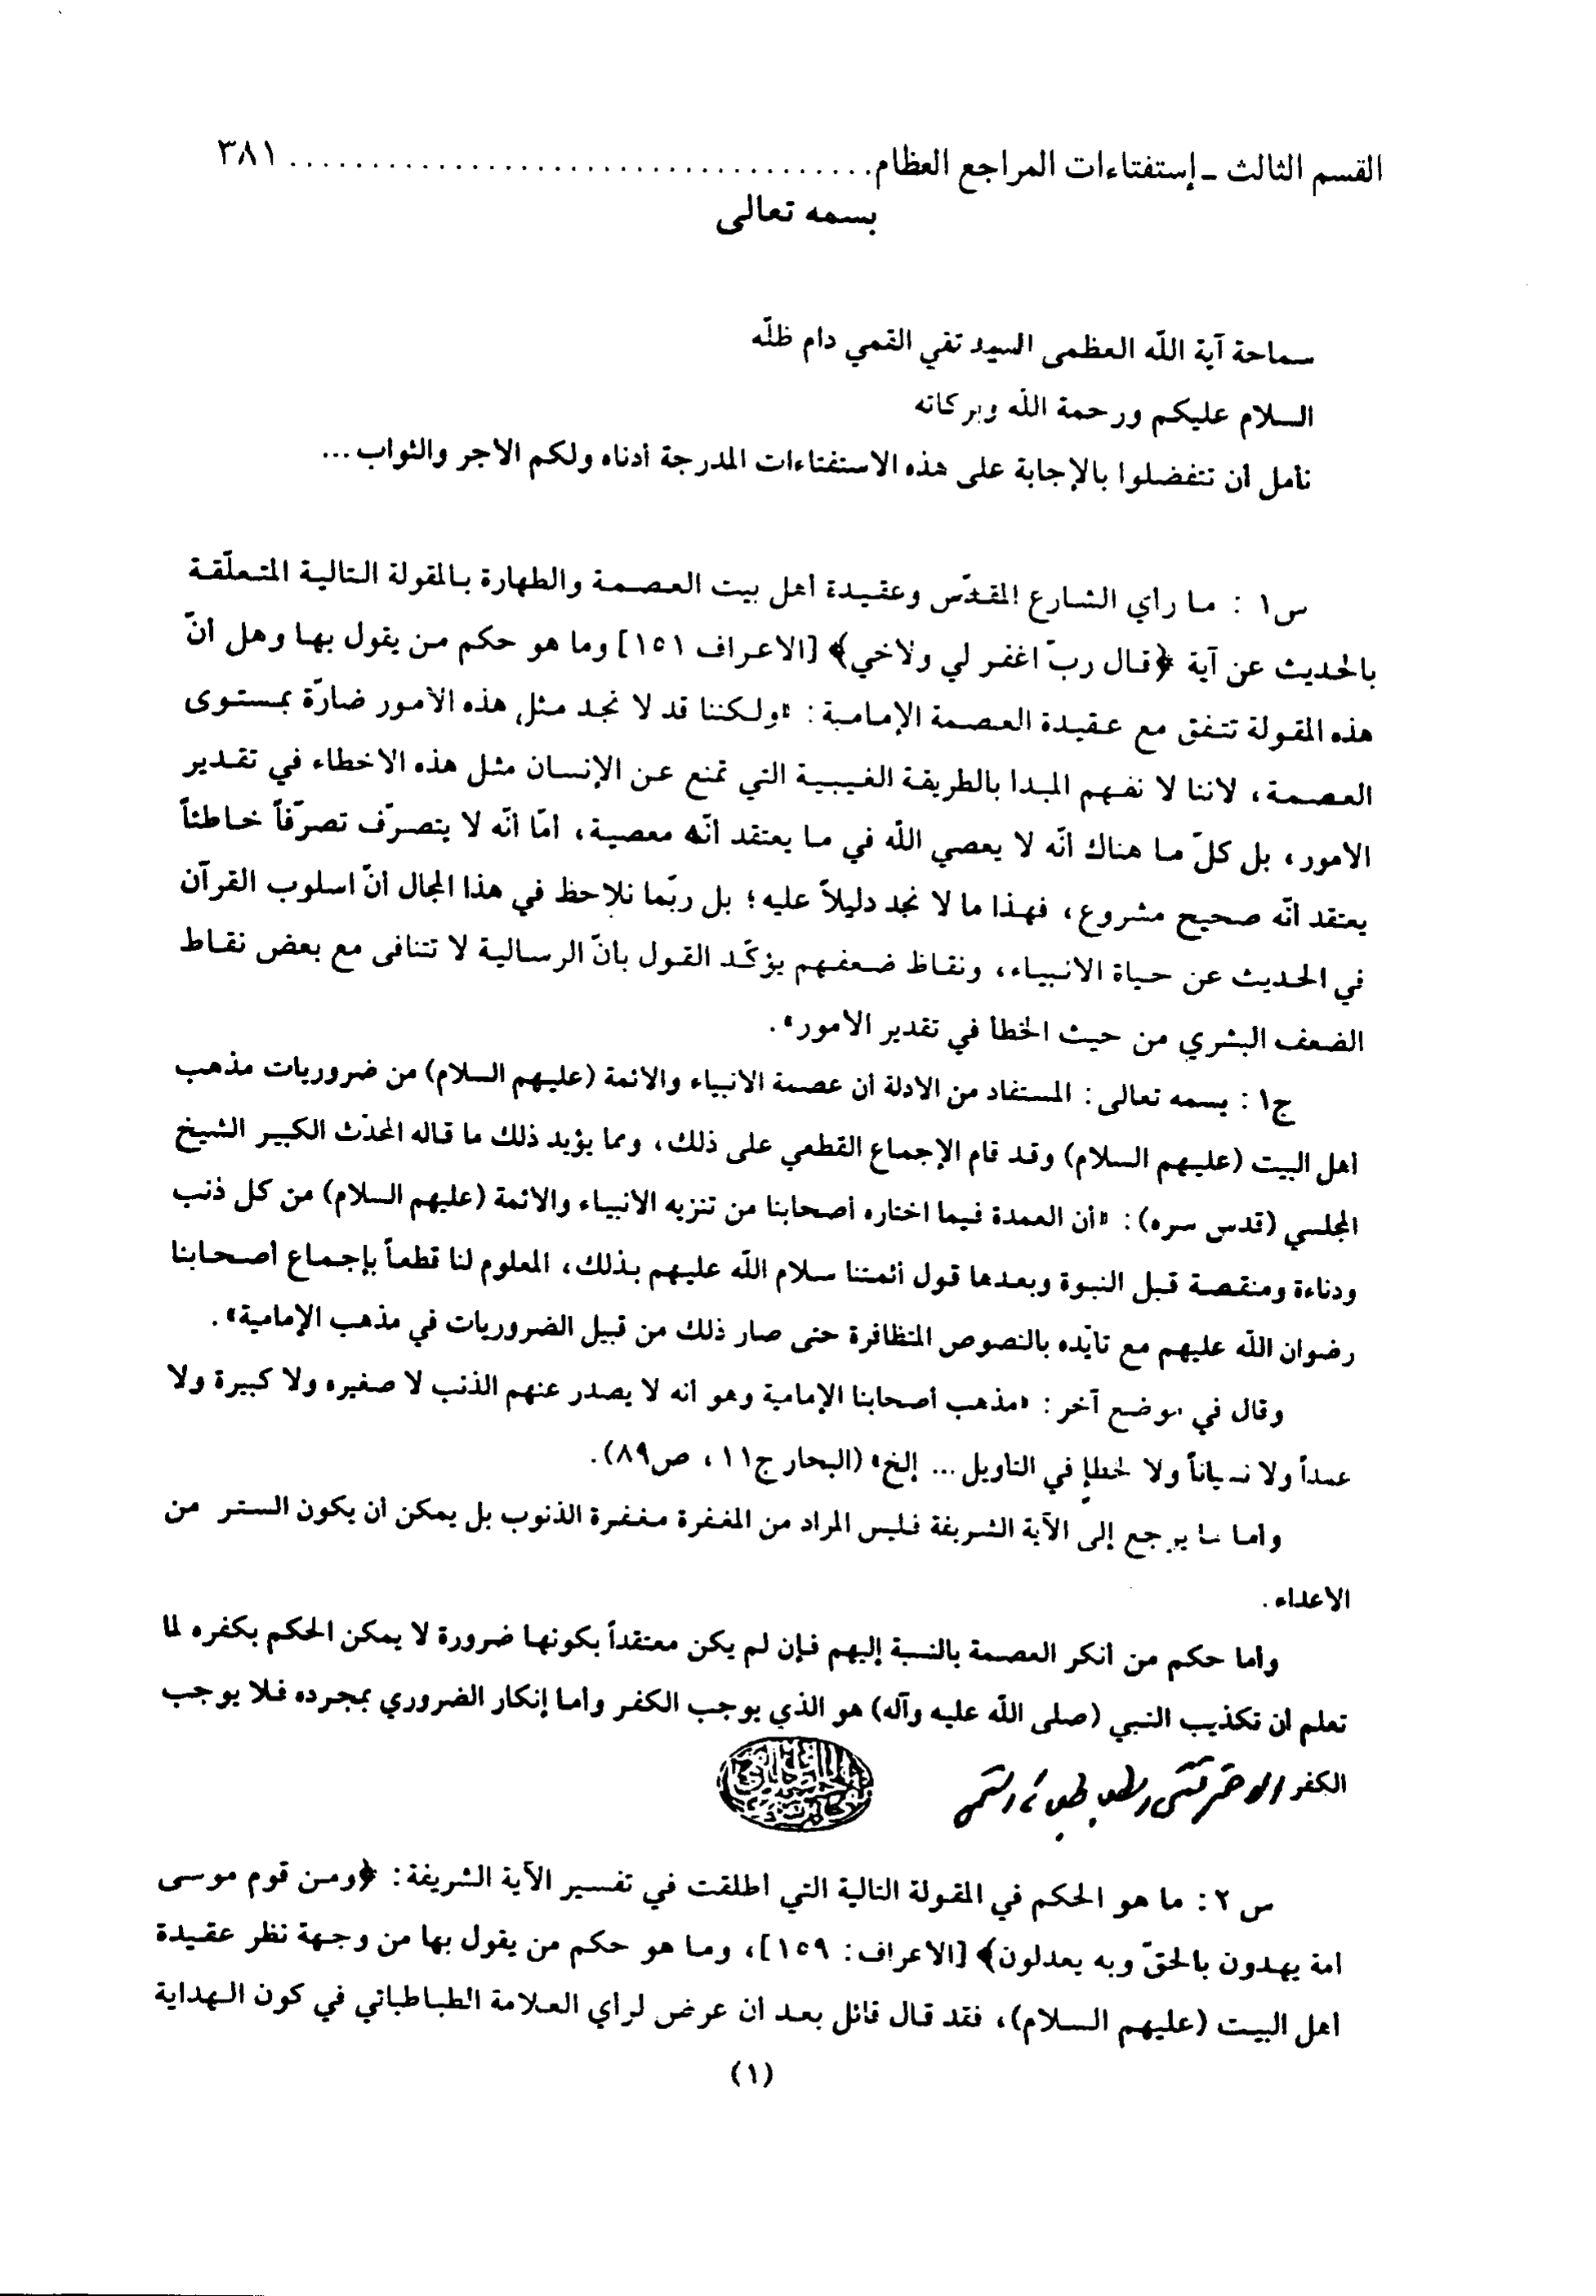 القسم الثالث ـ إستفتاءات المراجع العظام.................................... ٣٨١
بسمه تعالى
سماحة آية اللّه العظمى السيد تقي القمي دام ظلّه
السلام عليكم ورحمة اللّه وبركاته
نأمل أن تتفضلوا بالإجابة على هذه الاستفتاءات المدرجة أدناه ولكم الأجر والثواب ...
س١ : ما رأي الشارع المقدّس وعقيدة أهل بيت العصمة والطهارة بالمقولة التالية المتعلّقة
بالحديث عن آية ﴿قال ربّ اغفر لي ولاخي﴾ [الاعراف ١٥١] وما هو حكم من يقول بها وهل أنّ
هذه المقولة تتفق مع عقيدة العصمة الإمامية : «ولكننا قد لا نجد مثل هذه الأمور ضارّة بمستوى
العصمة، لاننا لا نفهم المبدا بالطريقة الغيبية التي تمنع عن الإنسان مثل هذه الاخطاء في تقدير
الامور، بل كلّ ما هناك أنّه لا يعصي اللّه في ما يعتقد أنّه معصية، أمّا أنّه لا يتصرّف تصرّفاً خاطئاً
يعتقد أنّه صحيح مشروع، فهذا ما لا نجد دليلاً عليه؛ بل ربّما نلاحظ في هذا المجال أنّ اسلوب القرآن
في الحديث عن حياة الانبياء، ونقاط ضعفهم يؤكّد القول بانّ الرسالية لا تتنافى مع بعض نقاط
الضعف البشري من حيث الخطأ في تقدير الامور».
ج١ : بسمه تعالى : المستفاد من الادلة أن عصمة الانبياء والائمة (عليهم السلام) من ضروريات مذهب
أهل البيت (عليهم السلام) وقد قام الإجماع القطعي على ذلك، ومما يؤيد ذلك ما قاله المحدّث الكبير الشيخ
المجلسي (قدس سره) : «أن العمدة فيما اختاره أصحابنا من تنزيه الانبياء والائمة (عليهم السلام) من كل ذنب
ودناءة ومنقصة قبل النبوة وبعدها قول أئمتنا سلام اللّه عليهم بذلك، المعلوم لنا قطعاً بإجماع أصحابنا
رضوان اللّه عليهم مع تأيّده بالنصوص المتظافرة حتى صار ذلك من قبيل الضروريات في مذهب الإمامية».
وقال في موضع آخر : «مذهب أصحابنا الإمامية وهو أنه لا يصدر عنهم الذنب لا صغيره ولا كبيرة ولا
عمداً ولا نسياناً ولا لخطإ في التاويل ... إلخ» (البحار ج١١، ص٨٩).
وأما ما يرجع إلى الآية الشريفة فليس المراد من المغفرة مغفرة الذنوب بل يمكن أن يكون الستر من
الاعداء.
وأما حكم من أنكر العصمة بالنسبة إليهم فإن لم يكن معتقداً بكونها ضرورة لا يمكن الحكم بكفره لما
تعلم أن تكذيب النبي (صلى اللّه عليه وآله) هو الذي يوجب الكفر وأما إنكار الضروري بمجرده فلا يوجب
الكفر
س٢ : ما هو الحكم في المقولة التالية التي اطلقت في تفسير الآية الشريفة : ﴿ومن قوم موسى
امة يهدون بالحقّ وبه يعدلون﴾ [الاعراف: ١٥٩]، وما هو حكم من يقول بها من وجهة نظر عقيدة
أهل البيت (عليهم السلام)، فقد قال قائل بعد ان عرض لرأي العلامة الطباطبائي في كون الهداية
(١)